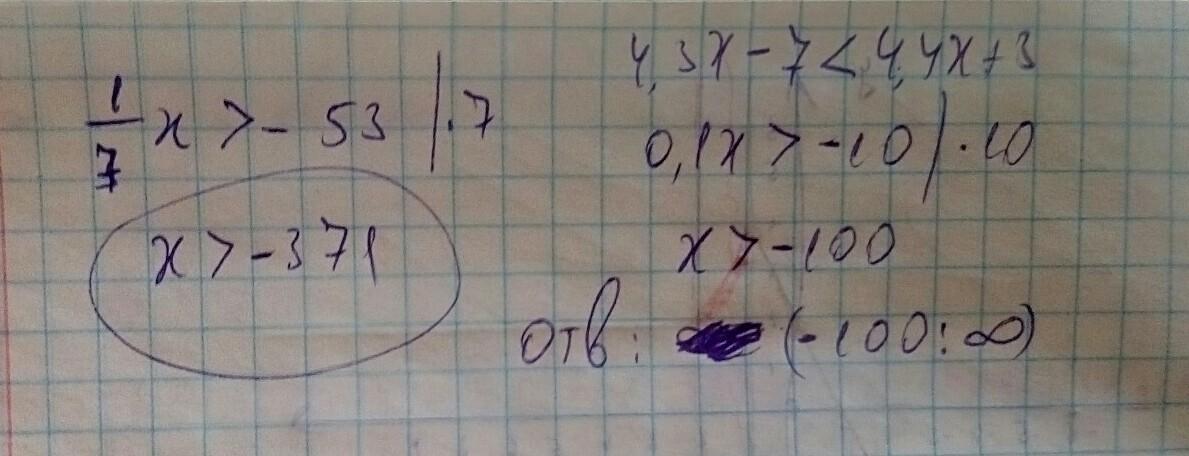 1/7 x > - 53 | · 7
x > - 371
4,3x - 7 < 4,4x + 3
0,1x > -10 | · 10
x > -100
Отв: (-100: ∞)